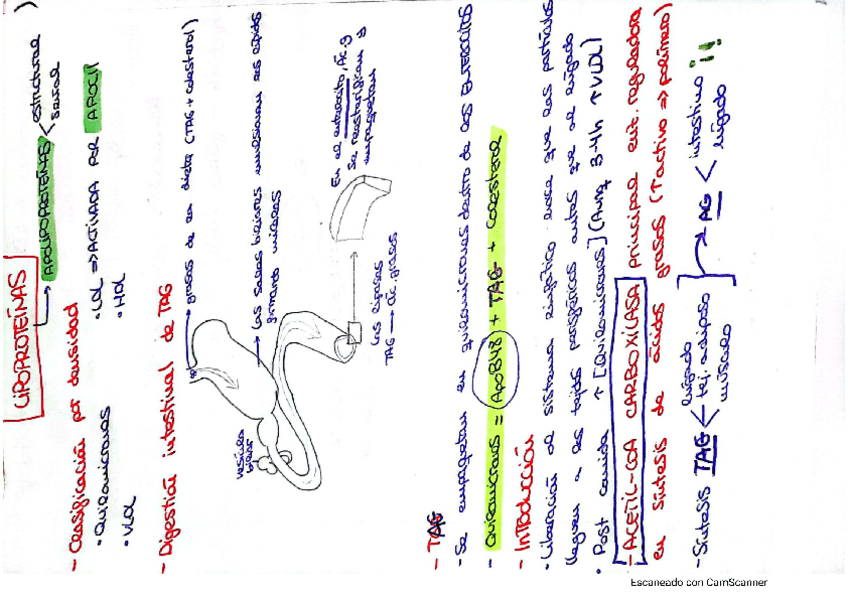 LIPOPROTEÍNAS
APOLIPOPROTEÍNAS
estructural
señal
- Clasificación por densidad
• Quilomicrones
• VLDL
• LDL => ACTIVADA POR APOCII
• HDL
- Digestión intestinal de TAG
grasas de la dieta (TAG + colesterol)
Las sales biliares emulsionan los lípidos
formando micelas
vesícula
biliar
En el enterocito, Ác. g
se reesterifican y
empaquetan
Las lipasas
TAG → Ác. grasos
- TAG
- Se empaquetan en quilomicrones dentro de los ENTEROCITOS
- Quilomicrones = ApoB48 + TAG + Colesterol
- INTRODUCCIÓN
• Liberación al sistema linfático hace que las partículas
lleguen a los tejidos periféricos antes que al hígado
• Post comida ↑ [Quilomicrones] (Aunq 3-4h ↑ VLDL)
- ACETIL-COA CARBOXILASA Principal enz. reguladora
en síntesis de ácidos grasos (↑activo => polímero)
- Síntesis TAG
hígado
tej. adiposo
músculo
AG
intestino
hígado
!!
Escaneado con CamScanner